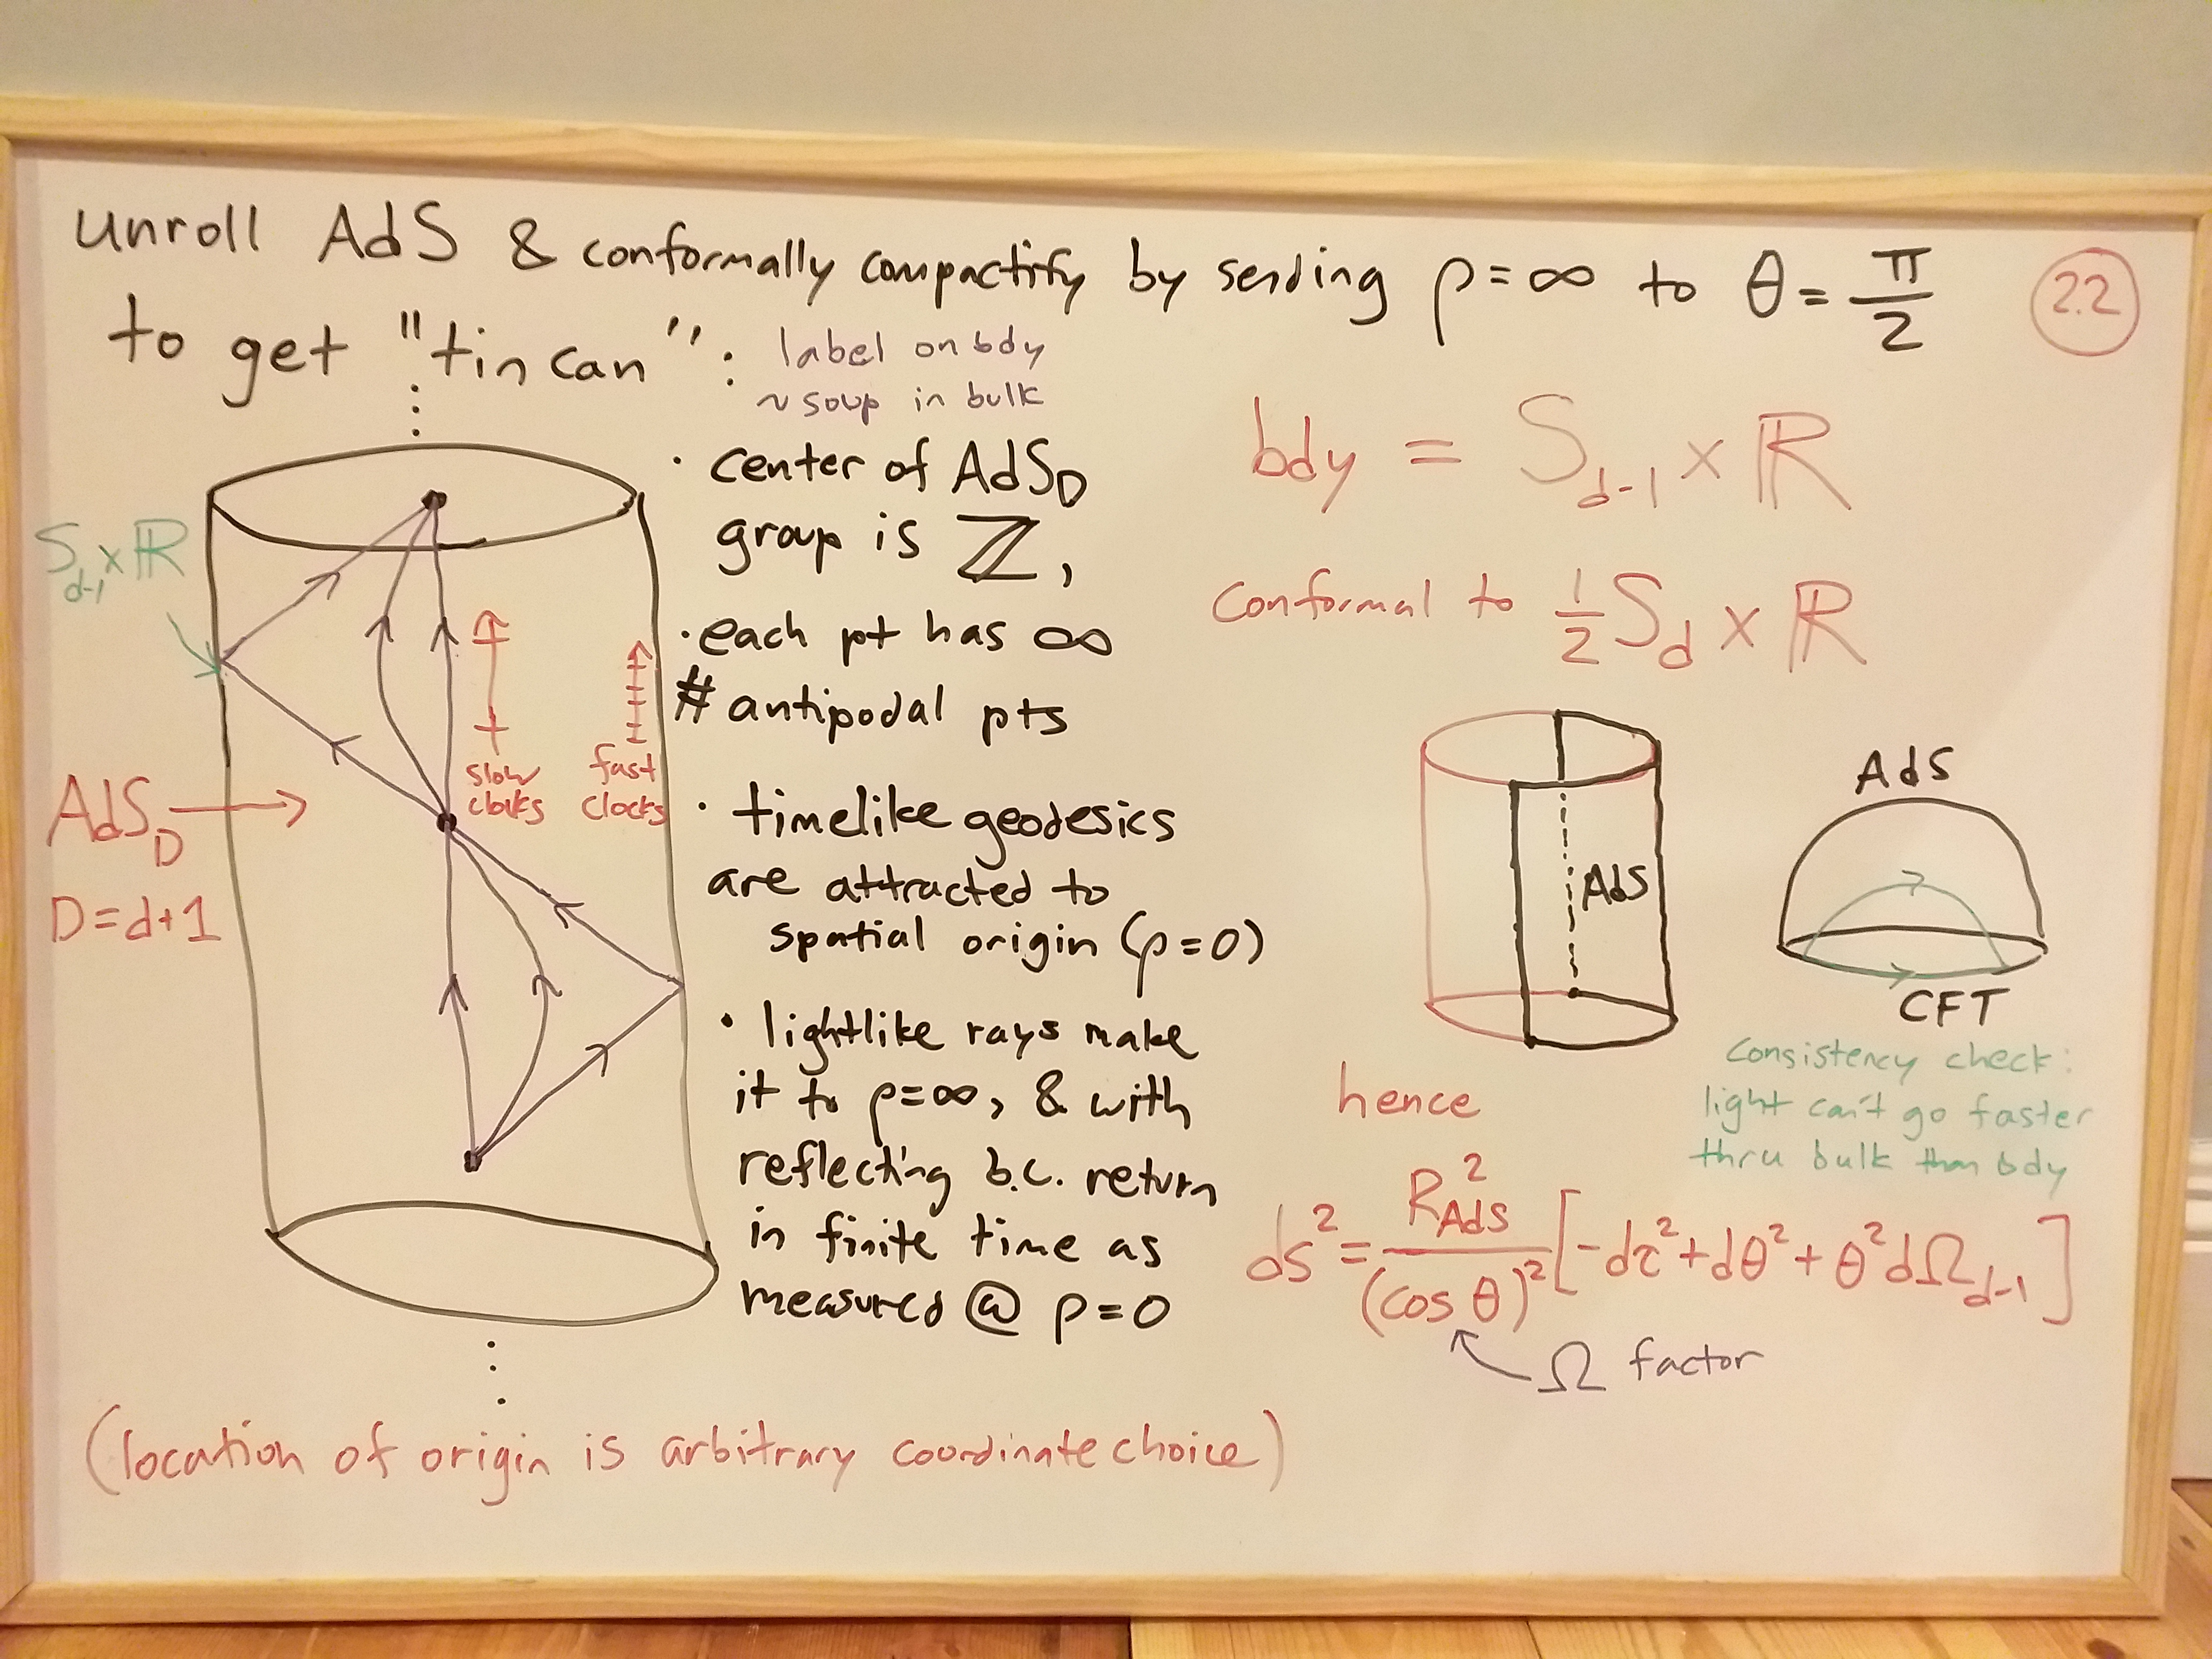 unroll AdS & conformally compactify by sending ρ=∞ to θ=π/2
2.2
to get "tin can":
label on bdy
~ soup in bulk
S_{d-1} × ℝ
AdS_D
D=d+1
slow clocks
fast clocks
· center of AdS_D
group is ℤ,
· each pt has ∞
# antipodal pts
· timelike geodesics
are attracted to
spatial origin (ρ=0)
· lightlike rays make
it to ρ=∞, & with
reflecting b.c. return
in finite time as
measured @ ρ=0
(location of origin is arbitrary coordinate choice)
bdy = S_{d-1} × ℝ
conformal to ½ S_d × ℝ
AdS
AdS
CFT
consistency check:
light can't go faster
thru bulk than bdy
hence
ds² = R_{AdS}²/(cos θ)² [-dτ² + dθ² + θ² dΩ_{d-1}]
Ω factor